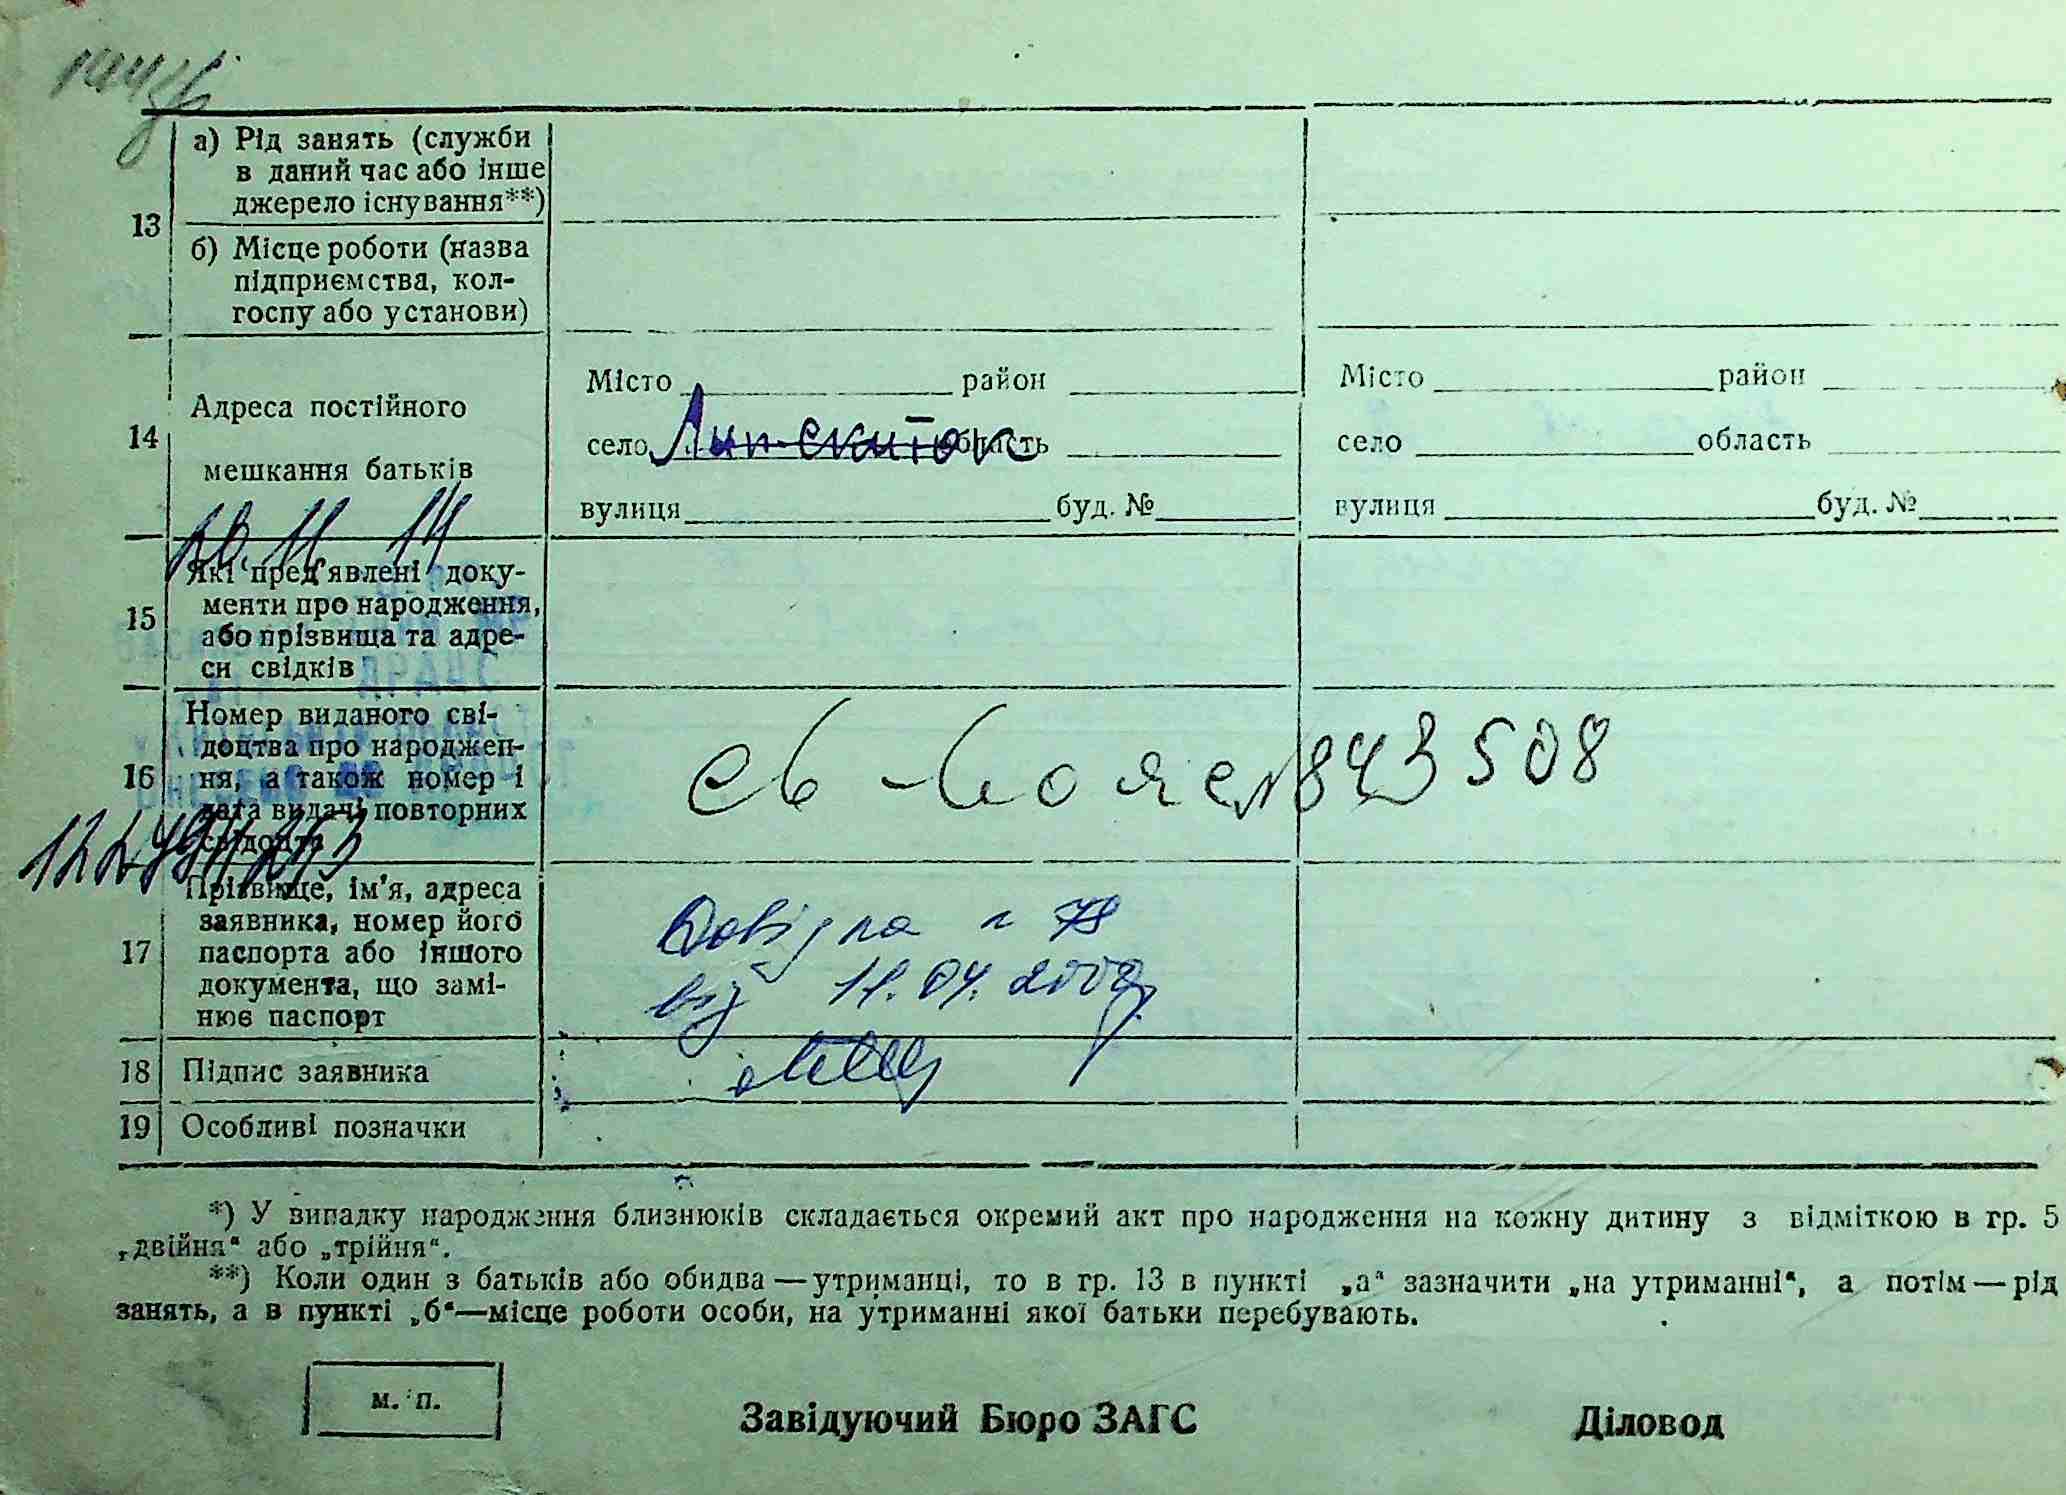 13
а) Рід занять (служби
в даний час або інше
джерело існування**)
б) Місце роботи (назва
підприємства, кол-
госпу або установи)
14
Адреса постійного
мешкання батьків
Місто район
село область
вулиця буд. №
Місто район
село область
вулиця буд. №
15
Які пред'явлені доку-
менти про народження,
або прізвища та адре-
си свідків
16
Номер виданого сві-
доцтва про народжен-
ня, а також номер і
дата видачі повторних
свідоцтв
843508
17
Прізвище, ім'я, адреса
заявника, номер його
паспорта або іншого
документа, що замі-
нює паспорт
Довідка н 78
від 11.04.2002р
18 Підпис заявника
19 Особливі позначки
*) У випадку народження близнюків складається окремий акт про народження на кожну дитину з відміткою в гр. 5
„двійня“ або „трійня“.
**) Коли один з батьків або обидва—утриманці, то в гр. 13 в пункті „а“ зазначити „на утриманні“, а потім—рід
занять, а в пункті „б“—місце роботи особи, на утриманні якої батьки перебувають.
м. п.
Завідуючий Бюро ЗАГС
Діловод